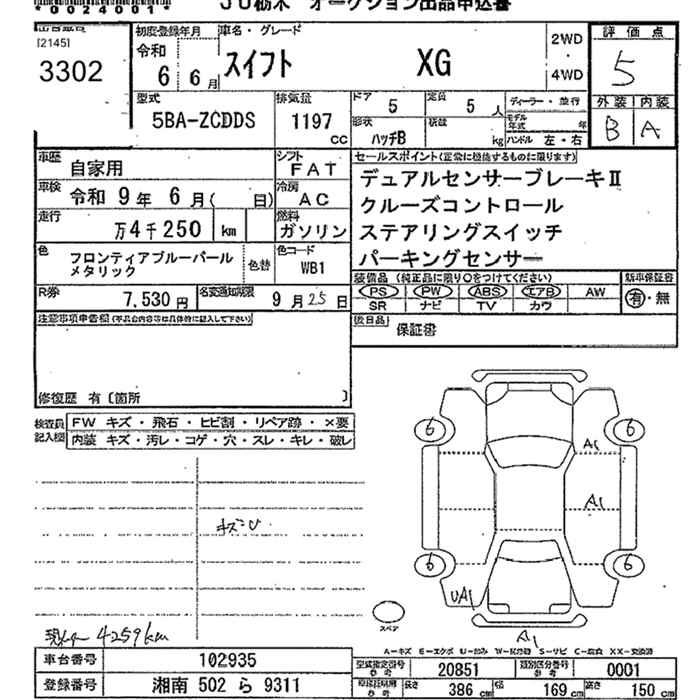 *00240011*
JU栃木 オークション出品申込書
[2145]
3302
初度登録年月
令和
6 6月
車名・グレード
スイフト XG
2WD
・
4WD
評価点
5
外装 内装
B A
型式
5BA-ZCDDS
排気量
1197
cc
ドア
5
定員
5 人
形状
ハッチB
積載
kg
ディーラー・並行
モデル年式 年
ハンドル 左・右
車歴
自家用
シフト
FAT
車検
令和 9年 6月( 日)
冷房
AC
走行
万4千250 km
燃料
ガソリン
色
フロンティアブルーパール
メタリック
色替
色コード
WB1
R券
7,530円
名変通知期限
9月25日
セールスポイント(正常に機能するものに限ります)
デュアルセンサーブレーキⅡ
クルーズコントロール
ステアリングスイッチ
パーキングセンサー
装備品 (純正品に限り〇をつけてください)
PS PW ABS エアB AW
SR ナビ TV カワ
新車保証書
有・無
後日品
保証書
注意事項申告欄(不具合内容等は具体的に記入して下さい)
修復歴 有〔箇所 〕
検査員
記入欄
FW キズ・飛石・ヒビ割・リペア跡・×要
内装 キズ・汚レ・コゲ・穴・スレ・キレ・破レ
キズU
6 6
A1
A1
6 6
UA1
A1
スペア
4259km
A-キズ E-エクボ U-凹み W-波 S-サビ C-腐食 XX-交換済
車台番号
102935
登録番号
湘南 502 ら 9311
型式指定番号
参考
20851
類別区分番号
参考
0001
車検証明用
参考
長さ
386 cm
幅
169 cm
高さ
150 cm